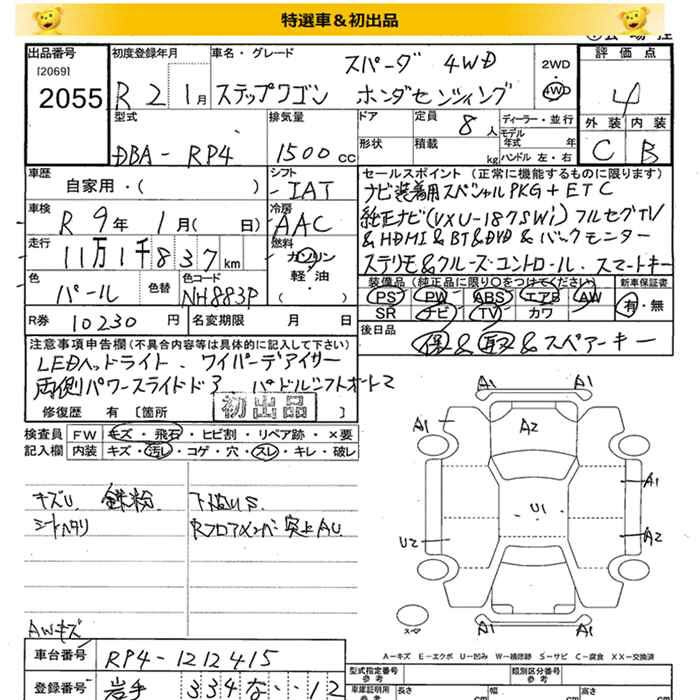 特選車＆初出品
出品番号
[2069]
2055
初度登録年月
R 2 1月
車名・グレード
スパーダ 4WD
ステップワゴン ホンダセンシング
2WD
4WD
評価点
4
外装 内装
C B
型式
DBA - RP4
排気量
1500 cc
ドア
形状
定員 8 人
積載 kg
ディーラー・並行
モデル年式 年
ハンドル 左・右
車歴
自家用・( )
シフト
IAT
車検
R 9年 1月( 日)
冷房
AAC
走行
11万1千837km
燃料
ガソリン
軽・油
( )
色
パール
色替
色コード
NH883P
R券 10230 円
名変期限 月 日
セールスポイント (正常に機能するものに限ります)
ナビ装着用スペシャルPKG + ETC
純正ナビ(VXU-187SWi) フルセグTV
& HDMI & BT & DVD & バックモニター
ステリモ & クルーズ・コントロール. スマートキー
装備品 (純正品に限り○をつけてください)
PS PW ABS エアB AW
SR ナビ TV カワ
新車保証書
有・無
後日品
保 & 取 & スペアーキー
注意事項申告欄(不具合内容等は具体的に記入して下さい)
LEDヘッドライト. ワイパーデアイサー
両側パワースライドドア. パドルシフトオートマ
修復歴 有 [箇所 ]
初出品
検査員記入欄
FW キズ・飛石・ヒビ割・リペア跡・×要
内装 キズ・汚レ・コゲ・穴・スレ・キレ・破レ
キズU 鉄粉.
シートヘタリ
下廻りS.
Rフロアメンバー突上AU
AWキズ
A1 A1
A1 A2
A1
U1
U2 A2
A1 A1
スペア
A－キズ E－エクボ U－凹み W－補修跡 S－サビ C－腐食 XX－交換済
車台番号
RP4-1212415
登録番号
岩手 334 な ・・12
型式指定番号
参考
類別区分番号
参考
車庫証明用
参考
長さ cm
幅 cm
高さ cm